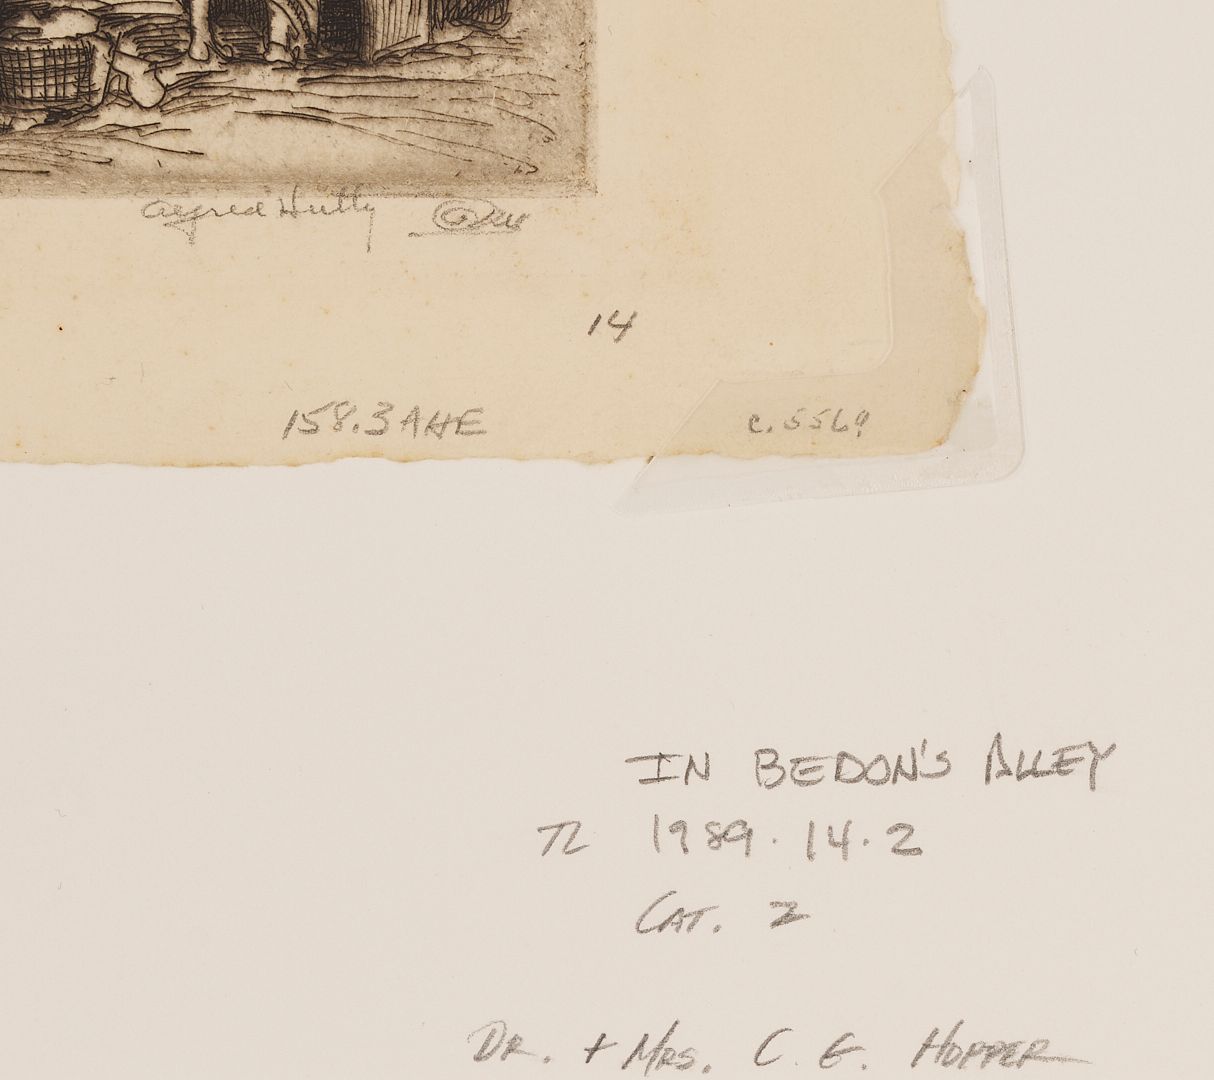 Alfred Hutty
14
158.3 AHE
c. 5569
IN BEDON'S ALLEY
TL 1989.14.2
CAT. 2
DR. + MRS. C. E. HOPPER